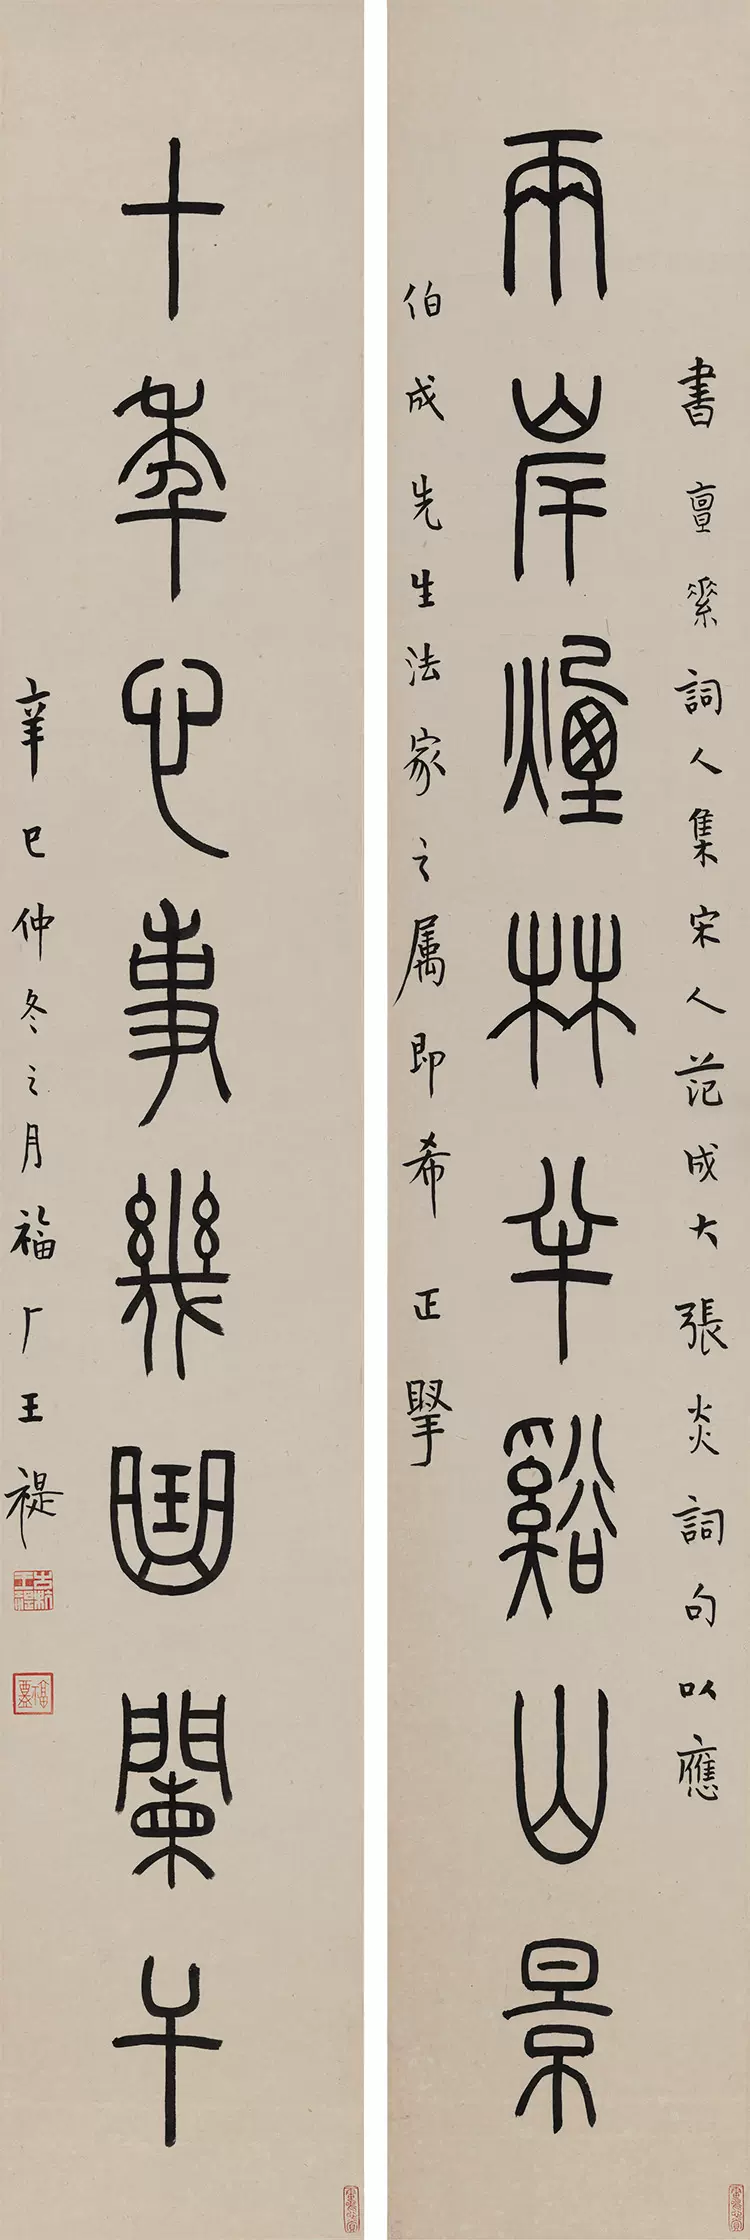 書亶素詞人集宋人范成大張炎詞句以應
兩岸煙林半谿山景
伯成先生法家之属即希正掔
十年心事幾曲闌干
辛巳仲冬之月福厂王禔
古杭王禔
福盦